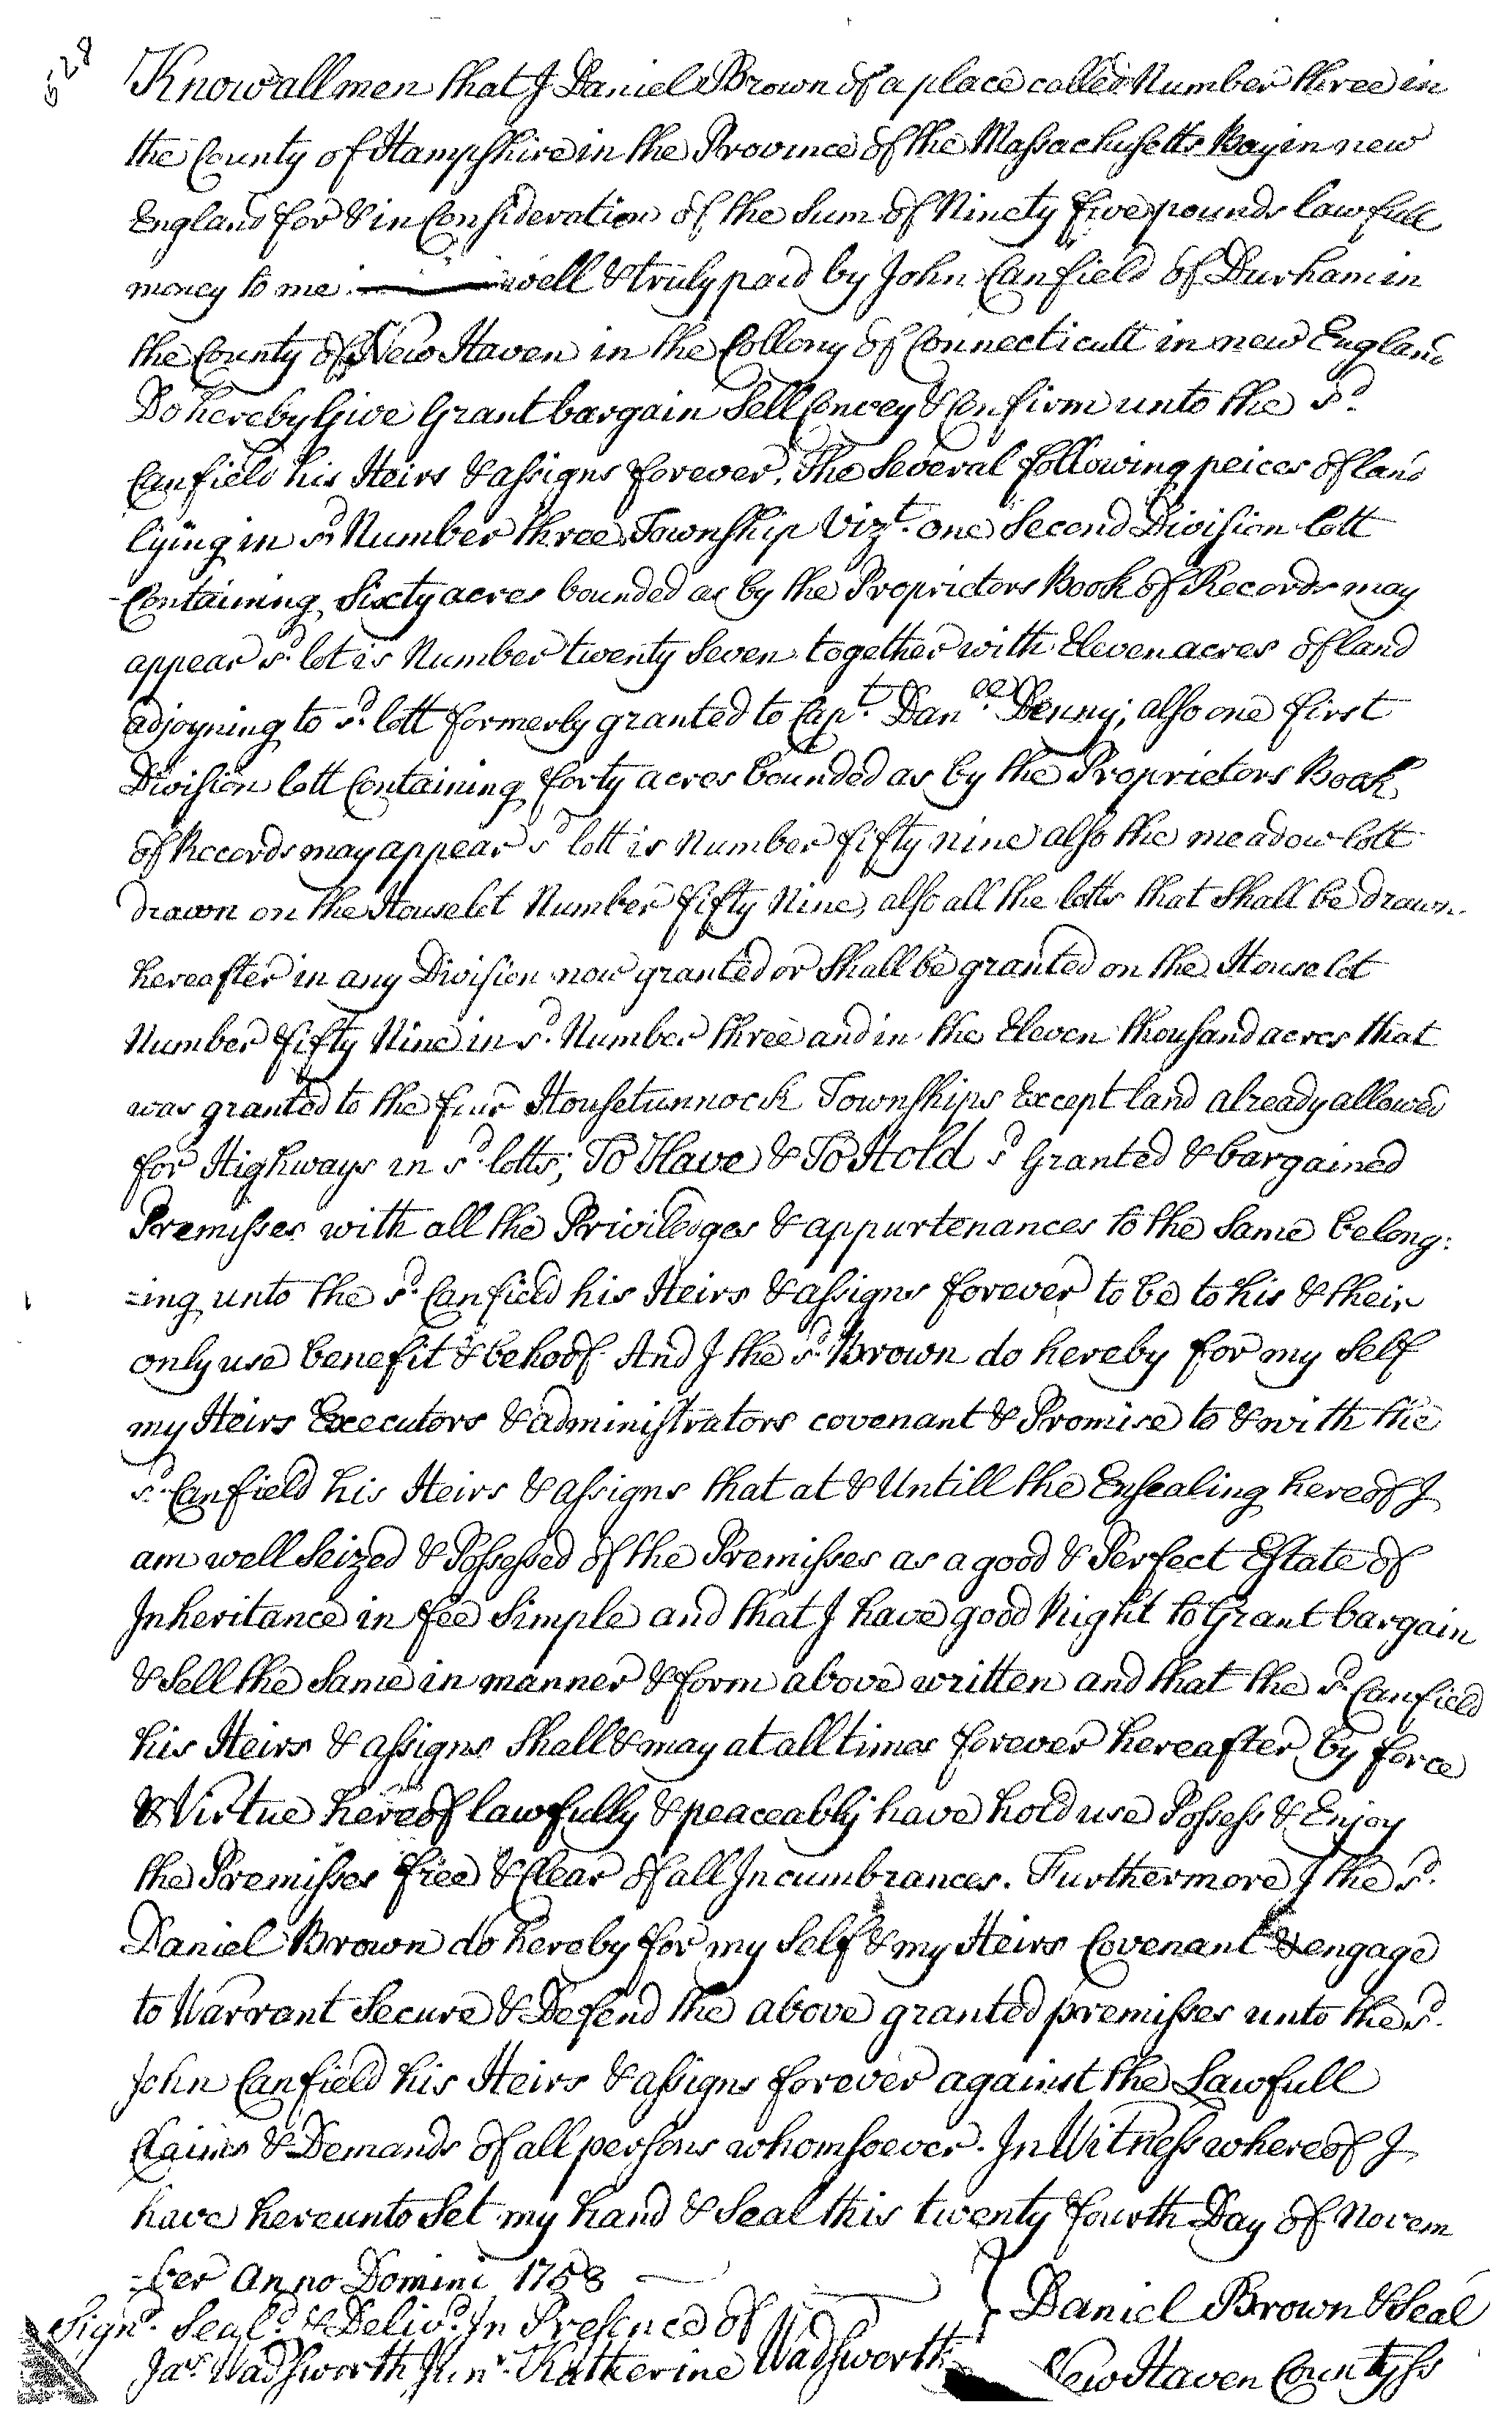 528
Know all men that I Daniel Brown of a place called Number three in
the County of Hampshire in the Province of the Massachusetts Bay in new
England for & in Consideration of the Sum of Ninety five pounds lawfull
money to me well & truly paid by John Canfield of Durham in
the County of New Haven in the Collony of Connecticutt in new England
Do hereby Give Grant bargain Sell Convey & Confirm unto the sd.
Canfield his Heirs & assigns forever, The Several following peices of land
lying in sd. Number three Township Vizt. one Second Division lott
Containing Sixty acres bounded as by the Proprietors Book of Records may
appear sd. lot is Number twenty Seven together with Eleven acres of land
adjoyning to sd. lott formerly granted to Capt. Danel. Denny; also one first
Division lott Containing forty acres bounded as by the Proprietors Book
of Records may appear sd lott is Number fifty nine also the meadow lott
drawn on the House lot Number fifty Nine, also all the lotts that Shall be drawn
hereafter in any Division now granted or Shall be granted on the House lot
Number fifty Nine in sd. Number three and in the Eleven thousand acres that
was granted to the four Housetunnock Townships Except land already allowed
for Highways in sd. lotts; To Have & To Hold sd Granted & bargained
Premisses with all the Priviledges & appurtenances to the Same belong:
=ing unto the sd. Canfield his Heirs & assigns forever to be to his & their
only use benefit & behoof And I the sd. Brown do hereby for my Self
my Heirs Executors & administrators covenant & Promise to & with the
sd. Canfield his Heirs & assigns that at & Untill the Ensealing hereof I
am well Seized & Possessed of the Premisses as a good & Perfect Estate of
Inheritance in fee Simple and that I have good Right to Grant bargain
& Sell the Same in manner & form above written and that the sd. Canfield
his Heirs & assigns Shall & may at all times forever hereafter by force
& Virtue hereof lawfully & peaceably have hold use Possess & Enjoy
the Premisses free & Clear of all Incumbrances. Furthermore I the sd.
Daniel Brown do hereby for my Self & my Heirs Covenant & engage
to Warrant Secure & Defend the above granted premisses unto the sd.
John Canfield his Heirs & assigns forever against the Lawfull
Claims & Demands of all persons whomsoever. In Witness whereof I
have hereunto Set my hand & Seal this twenty fourth Day of Novem
=ber Anno Domini 1758
Daniel Brown & Seal
Signd. Seald. & Delivd. In Presence of
Jas. Wadsworth Junr. Katherine Wadsworth
New Haven County ss